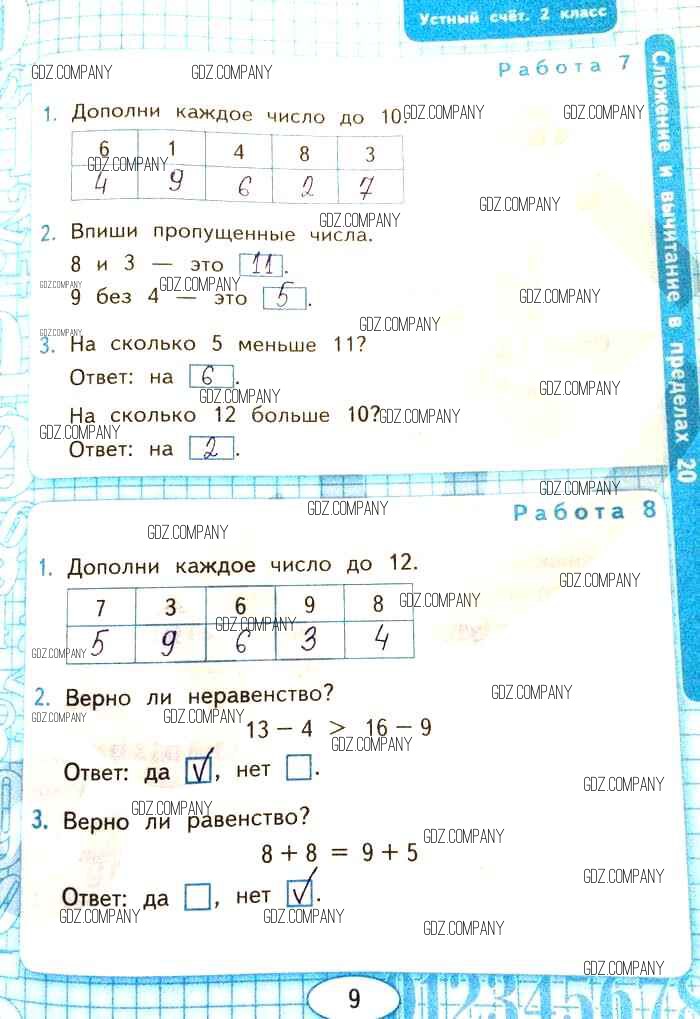 Устный счёт. 2 класс
Сложение и вычитание в пределах 20
Работа 7
GDZ.COMPANY GDZ.COMPANY
1. Дополни каждое число до 10. GDZ.COMPANY GDZ.COMPANY
6 1 4 8 3
GDZ.COMPANY
4 9 6 2 7
GDZ.COMPANY GDZ.COMPANY
2. Впиши пропущенные числа.
8 и 3 — это 11.
GDZ.COMPANY GDZ.COMPANY
9 без 4 — это 5. GDZ.COMPANY
GDZ.COMPANY GDZ.COMPANY
3. На сколько 5 меньше 11?
Ответ: на 6.
GDZ.COMPANY GDZ.COMPANY
На сколько 12 больше 10? GDZ.COMPANY
GDZ.COMPANY
Ответ: на 2.
GDZ.COMPANY
GDZ.COMPANY Работа 8
GDZ.COMPANY
1. Дополни каждое число до 12.
GDZ.COMPANY
7 3 6 9 8 GDZ.COMPANY
GDZ.COMPANY
5 9 6 3 4
GDZ.COMPANY
2. Верно ли неравенство? GDZ.COMPANY
GDZ.COMPANY GDZ.COMPANY
13 − 4 > 16 − 9
GDZ.COMPANY
Ответ: да ✓, нет .
GDZ.COMPANY
GDZ.COMPANY
3. Верно ли равенство?
GDZ.COMPANY
8 + 8 = 9 + 5
GDZ.COMPANY
Ответ: да , нет ✓.
GDZ.COMPANY GDZ.COMPANY GDZ.COMPANY
GDZ.COMPANY
9
012345678